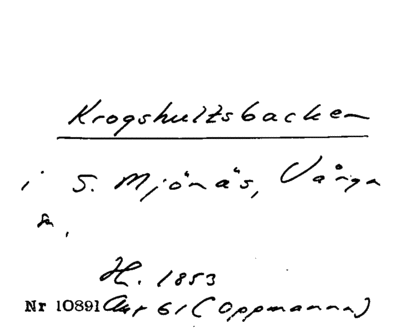 Krogshultsbacken
i S. Mjönäs, Vånga
sn.
H. 1853
Nr 10891 Akt 61 (Oppmanna)